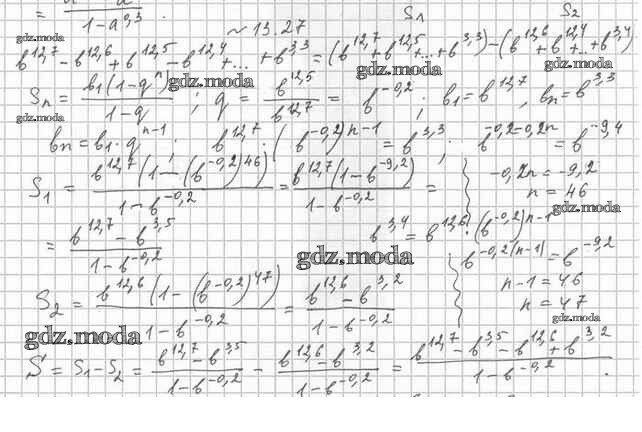 = 1-a^{0,3} .
~ 13.27
S₁ S₂
b^{12,7} - b^{12,6} + b^{12,5} - b^{12,4} + ... + b^{3,3} = (b^{12,7} + b^{12,5} + ... + b^{3,3}) - (b^{12,6} + b^{12,4} + ... + b^{3,4})
Sₙ = b₁(1-qⁿ) / 1-q ; q = b^{12,5} / b^{12,7} = b^{-0,2} ; b₁ = b^{12,7}, bₙ = b^{3,3}
bₙ = b₁ · q^{n-1} ; b^{12,7} · (b^{-0,2})^{n-1} = b^{3,3} ; b^{-0,2-0,2n} = b^{-9,4}
S₁ = b^{12,7}(1-(b^{-0,2})^{46}) / 1-b^{-0,2} = b^{12,7}(1-b^{-9,2}) / 1-b^{-0,2} =
-0,2n = -9,2
n = 46
= b^{12,7} - b^{3,5} / 1-b^{-0,2}
b^{3,4} = b^{12,6} · (b^{-0,2})^{n-1}
b^{-0,2(n-1)} = b^{-9,2}
n-1 = 46
n = 47
S₂ = b^{12,6}(1-(b^{-0,2})^{47}) / 1-b^{-0,2} = b^{12,6} - b^{3,2} / 1-b^{-0,2}
S = S₁-S₂ = b^{12,7} - b^{3,5} / 1-b^{-0,2} - b^{12,6} - b^{3,2} / 1-b^{-0,2} = b^{12,7} - b^{3,5} - b^{12,6} + b^{3,2} / 1-b^{-0,2} .
gdz.moda
gdz.moda
gdz.moda
gdz.moda
gdz.moda
gdz.moda
gdz.moda
gdz.moda
gdz.moda
gdz.moda